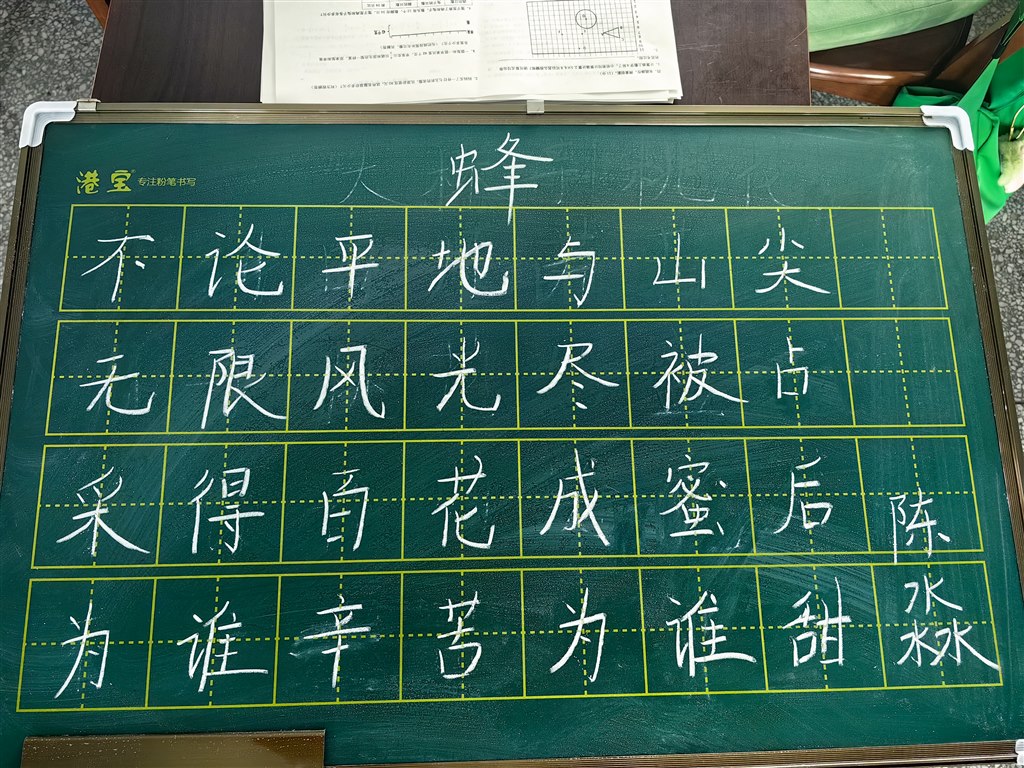 蜂
港宝 专注粉笔书写
不论平地与山尖
无限风光尽被占
采得百花成蜜后
为谁辛苦为谁甜
陈淼